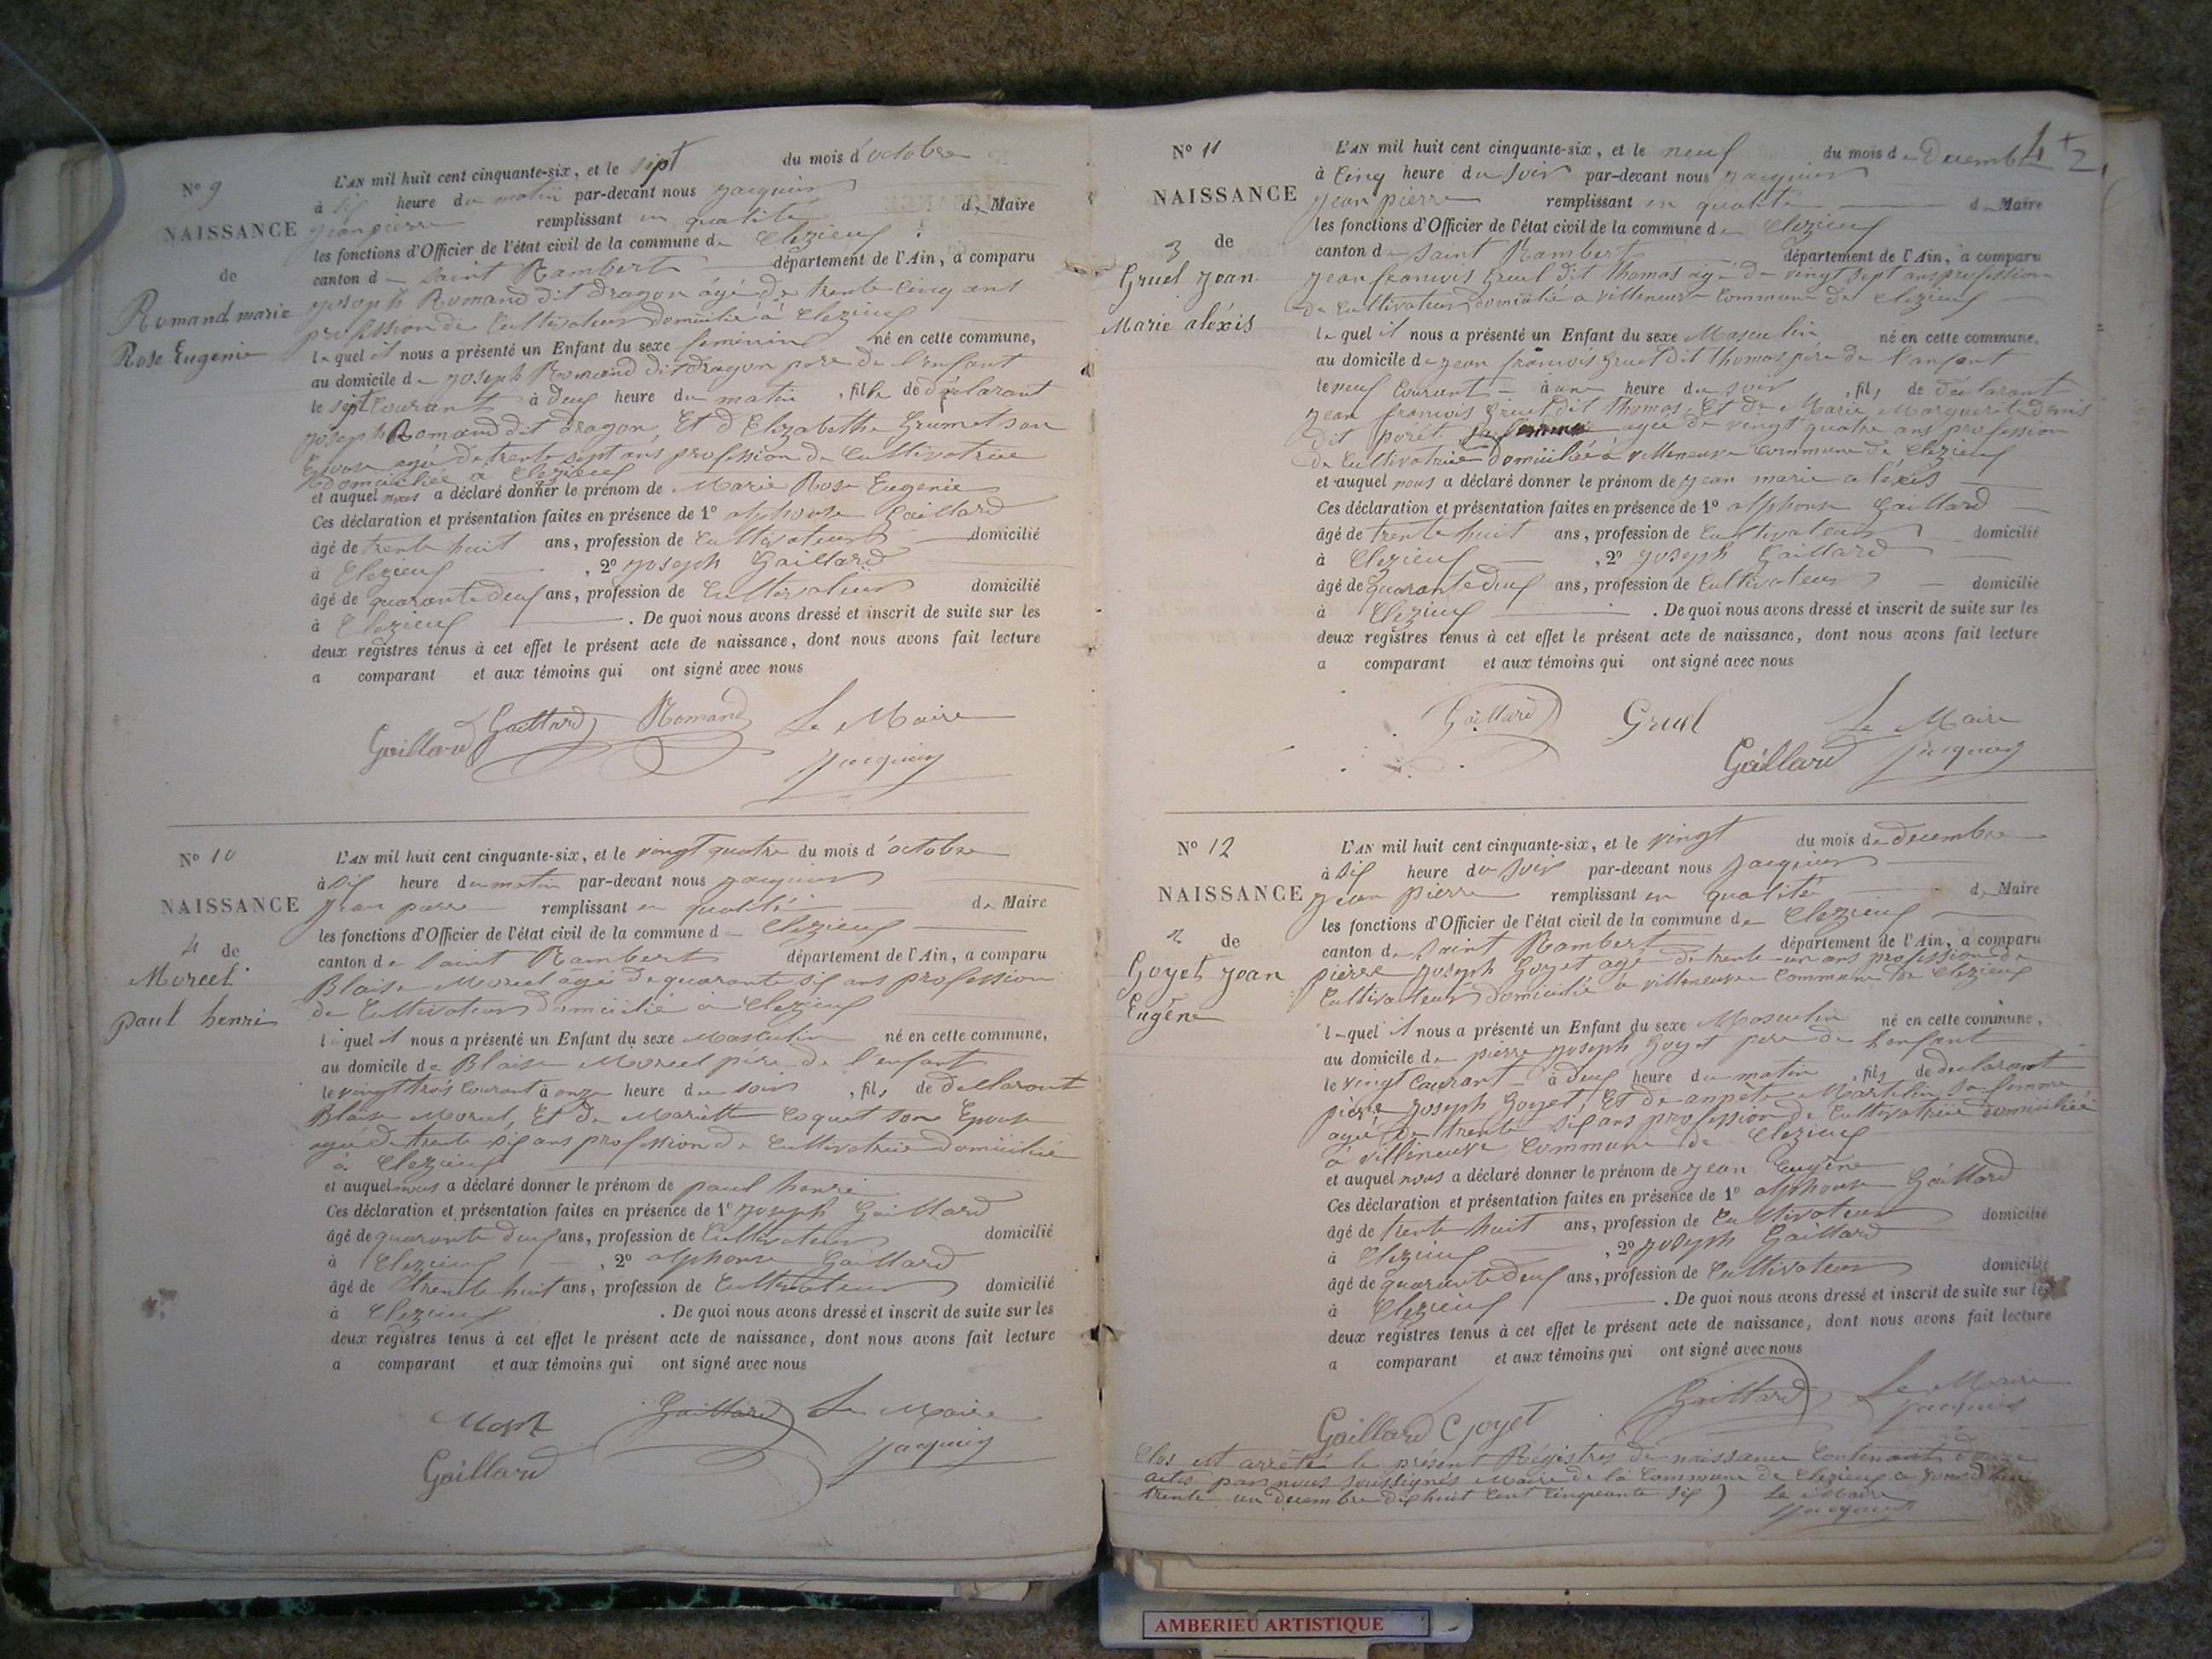 N° 9
NAISSANCE
de
Romand marie
Rose Eugenie
L'AN mil huit cent cinquante-six, et le sept du mois d'octobre
à six heure du matin par-devant nous jacquin
jean pierre remplissant en qualité de Maire
les fonctions d'Officier de l'état civil de la commune de Clezieux
canton de saint Rambert département de l'Ain, a comparu
joseph Romand dit dragon âgé de trente cinq ans
profession de Cultivateur domicilié à Clezieux
lequel il nous a présenté un Enfant du sexe feminin né en cette commune,
au domicile de joseph Romand dit dragon pere de l'enfant
le sept Courant à deux heure du matin, fille de déclarant
joseph Romand dit dragon, Et d'Elizabeth Grumet son
Epouse agée de trente sept ans profession de Cultivatrice
domiciliée à Clezieux
et auquel nous a déclaré donner le prénom de Marie Rose Eugenie
Ces déclaration et présentation faites en présence de 1° alphonse Gaillard
âgé de trente huit ans, profession de Cultivateur domicilié
à Clezieux, 2° joseph Gaillard
âgé de quarante deux ans, profession de Cultivateur domicilié
à Clezieux. De quoi nous avons dressé et inscrit de suite sur les
deux registres tenus à cet effet le présent acte de naissance, dont nous avons fait lecture
a comparant et aux témoins qui ont signé avec nous
Gaillard Gaillard Romand Le Maire
jacquin
N° 10
NAISSANCE
4 de
Morcel
paul henri
L'AN mil huit cent cinquante-six, et le vingt quatre du mois d'octobre
à six heure du matin par-devant nous jacquin
jean pierre remplissant en qualité de Maire
les fonctions d'Officier de l'état civil de la commune d Clezieux
canton de saint Rambert département de l'Ain, a comparu
Blaise Morcel âgé de quarante six ans profession
de Cultivateur domicilié à Clezieux
lequel il nous a présenté un Enfant du sexe Masculin né en cette commune,
au domicile de Blaise Morcel père de l'enfant
le vingt trois Courant à onze heure du soir, fils de déclarant
Blaise Morcel, Et de Mariette Coquet son Epouse
agée de trente six ans profession de Cultivatrice domiciliée
à Clezieux
et auquel nous a déclaré donner le prénom de paul henri
Ces déclaration et présentation faites en présence de 1° joseph Gaillard
âgé de quarante deux ans, profession de Cultivateur domicilié
à Clezieux, 2° alphonse Gaillard
âgé de trente huit ans, profession de Cultivateur domicilié
à Clezieux. De quoi nous avons dressé et inscrit de suite sur les
deux registres tenus à cet effet le présent acte de naissance, dont nous avons fait lecture
a comparant et aux témoins qui ont signé avec nous
Gaillard Le Maire
Gaillard jacquin
N° 11
NAISSANCE
3 de
Gruel jean
Marie aléxis
L'AN mil huit cent cinquante-six, et le neuf du mois de Decembre
à Cinq heure du soir par-devant nous jacquin
jean pierre remplissant en qualité de Maire
les fonctions d'Officier de l'état civil de la commune de Clezieux
canton de saint Rambert département de l'Ain, a comparu
jean francois Gruel dit thomas âgé de vingt sept ans profession
de Cultivateur domicilié a villeneuve Commune de Clezieux
lequel il nous a présenté un Enfant du sexe Masculin né en cette commune,
au domicile de jean francois Gruel dit thomas père de l'enfant
le neuf Courant à une heure du soir, fils de déclarant
jean francois Gruel dit thomas, Et de Marie Marguerite
dit sa femme agée de vingt quatre ans profession
de Cultivatrice domiciliée à villeneuve Commune de Clezieux
et auquel nous a déclaré donner le prénom de jean marie aléxis
Ces déclaration et présentation faites en présence de 1° alphonse Gaillard
âgé de trente huit ans, profession de Cultivateur domicilié
à Clezieux, 2° joseph Gaillard
âgé de quarante deux ans, profession de Cultivateur domicilié
à Clezieux. De quoi nous avons dressé et inscrit de suite sur les
deux registres tenus à cet effet le présent acte de naissance, dont nous avons fait lecture
a comparant et aux témoins qui ont signé avec nous
Gaillard Gruel Le Maire
Gaillard jacquin
N° 12
NAISSANCE
2 de
Goyet jean
Eugène
L'AN mil huit cent cinquante-six, et le vingt du mois de decembre
à six heure du soir par-devant nous jacquin
jean pierre remplissant en qualité de Maire
les fonctions d'Officier de l'état civil de la commune de Clezieux
canton de saint Rambert département de l'Ain, a comparu
pierre joseph Goyet agé de trente un ans profession de
Cultivateur domicilié a villeneuve Commune de Clezieux
lequel il nous a présenté un Enfant du sexe Masculin né en cette commune,
au domicile de pierre joseph Goyet pere de l'enfant
le vingt Courant à deux heure du matin, fils de declarant
pierre joseph Goyet, Et de Martelin sa femme
agée de trente six ans profession de Cultivatrice domiciliée
à villeneuve Commune de Clezieux
et auquel nous a déclaré donner le prénom de jean Eugène
Ces déclaration et présentation faites en présence de 1° alphonse Gaillard
âgé de trente huit ans, profession de Cultivateur domicilié
à Clezieux, 2° joseph Gaillard
âgé de quarante deux ans, profession de Cultivateur domicilié
à Clezieux. De quoi nous avons dressé et inscrit de suite sur les
deux registres tenus à cet effet le présent acte de naissance, dont nous avons fait lecture
a comparant et aux témoins qui ont signé avec nous
Gaillard Goyet Gaillard Le Maire
jacquin
Clos et arrêté le présent Régistres de naissance Contenant douze
actes par nous soussignés Maire de la Commune de Clezieux a jourd'hui
trente un decembre dix huit cent cinquante six Le Maire
jacquin
AMBERIEU ARTISTIQUE